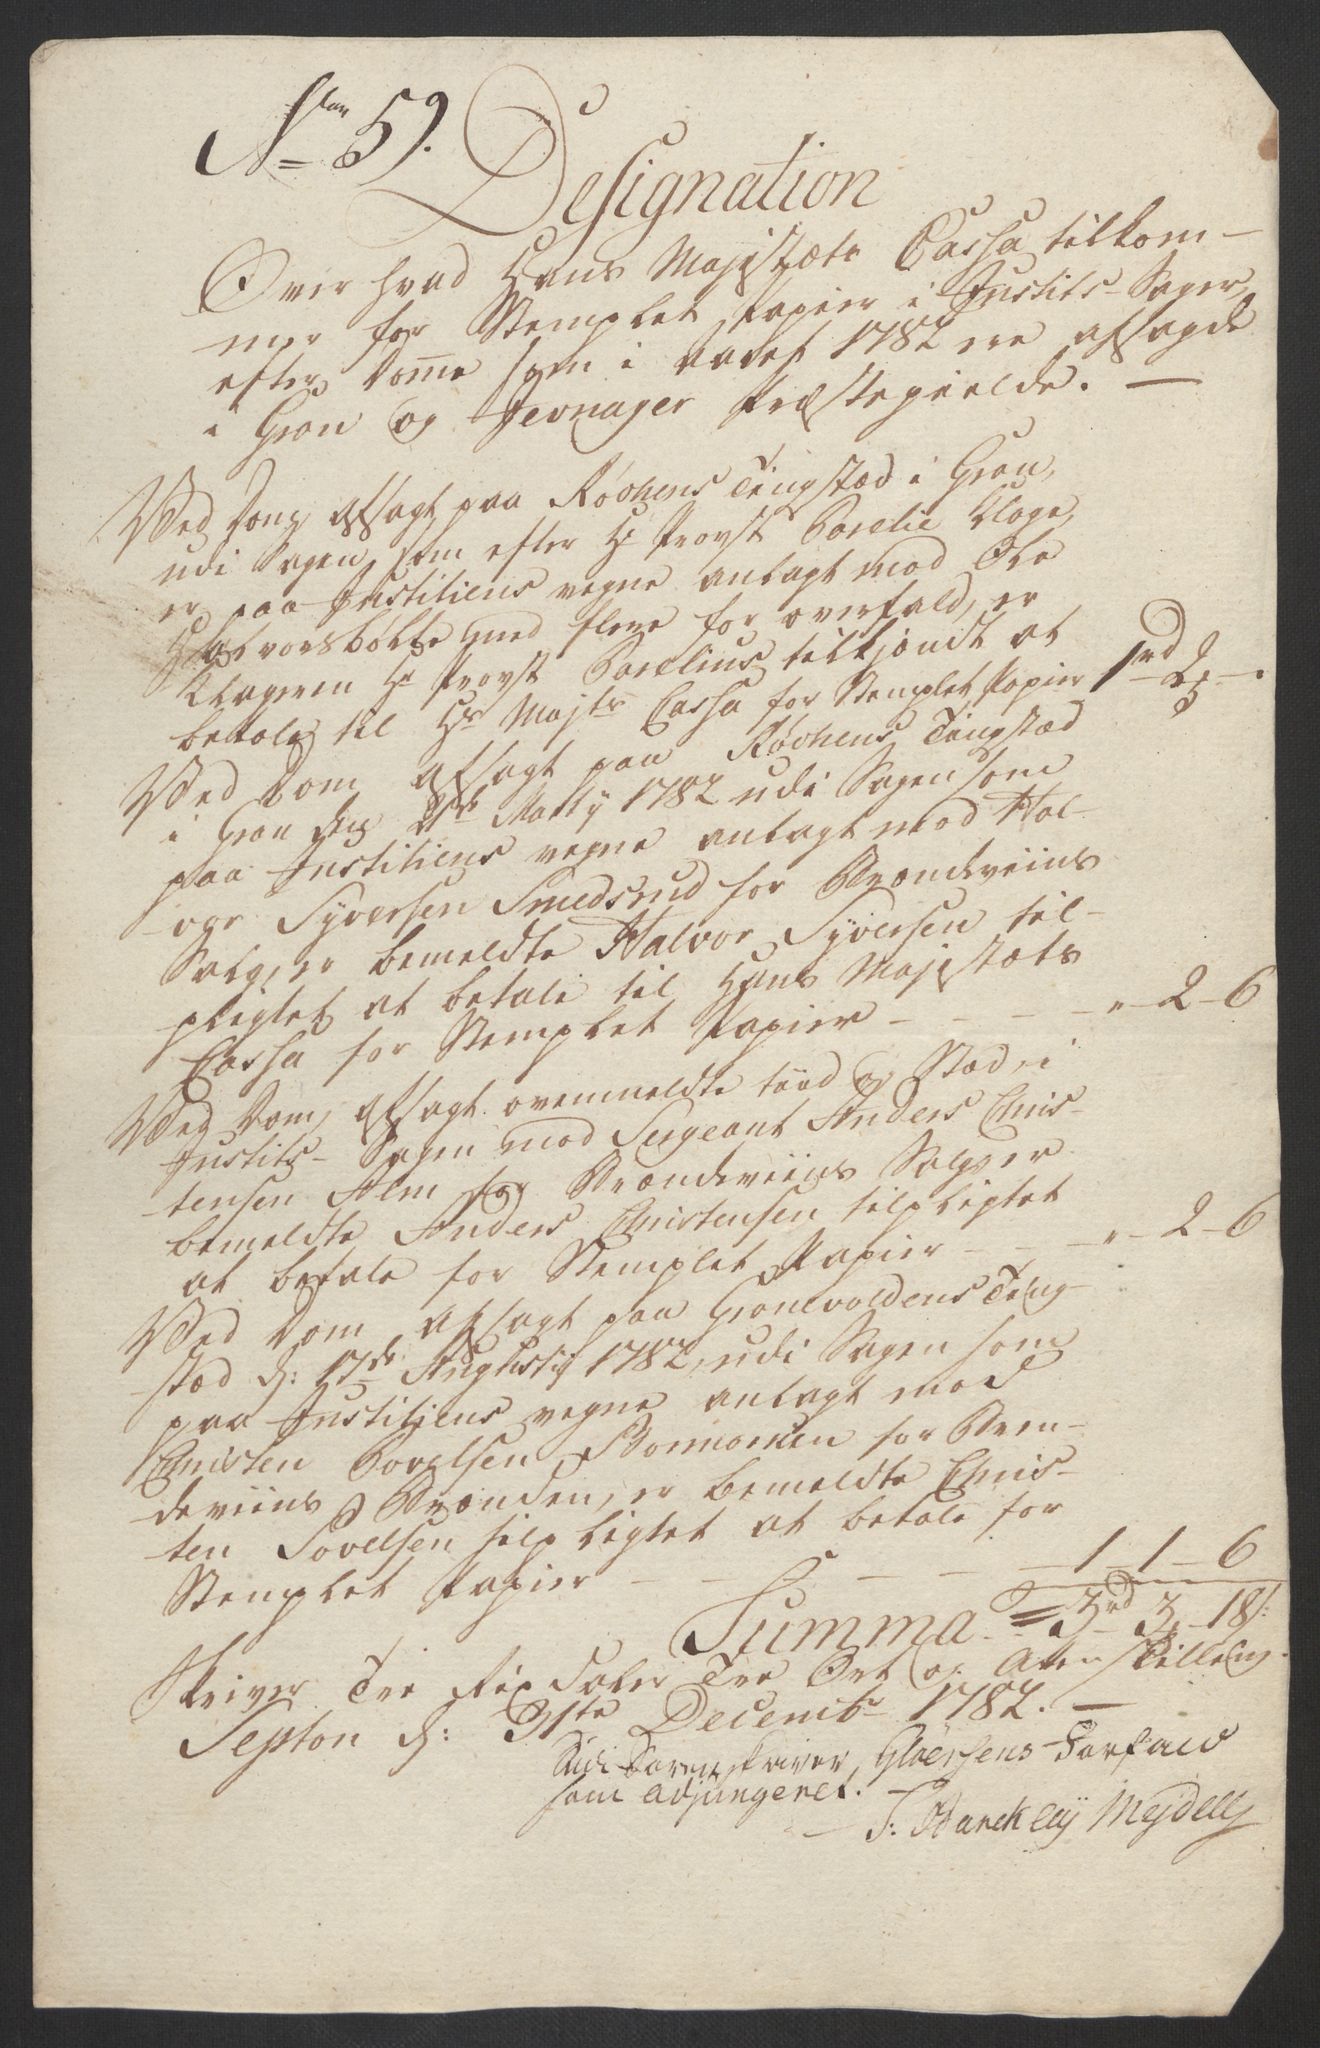 No 59.
Designation
Over hvad Hans Majestæts Cassa tilkom-
mer for Stemplet Papier i Justits-Sager,
efter Domme som i Aaret 1782 ere afsagde
i Gran og Jevnager Præstegielde. —
Ved Dom afsagt paa Røchens Tingstæd i Gran,
udi Sagen, som efter Hr Provst Borelii Klage,
er paa Justitiens vegne anlagt mod Ole
Halvorsbøkke med flere for overfald, er
Klageren Hr Provst Borelius tilkjendt at
betale til Hs Majts Cassa for Stemplet Papier 1rd 2 -
Ved Dom afsagt paa Røchens Tingstæd
i Gran den Martÿ 1782 udi Sagen som
paa Justitiens vegne anlagt mod Hal-
vor Syversen Smedsrud for Brændeviins
Salg, er bemeldte Halvor Syversen til-
pligtet at betale til Hans Majestæts
Cassa for Stemplet Papier - - - - " - 2 - 6
Ved Dom, afsagt ovenmeldte tiid og Stæd, i
Justits-Sagen mod Sergeant Anders Chris-
tensen Alm for Brændeviins Salg, er
bemeldte Anders Christensen tilpligtet
at betale for Stemplet Papier - - - " - 2 - 6
Ved Dom, afsagt paa Granevoldens Ting-
stæd d: 17de Augustij 1782, udi Sagen som
paa Justitiens vegne anlagt mod
Christen Povelsen for Bræn-
deviins Brænden, er bemeldte Chris-
ten Povelsen tilpligtet at betale for
Stemplet Papier - - - - - 1 - 1 - 6
Summa = 3rd 3 - 18s:
Skriver Tre Rixdaler Tre Ort og Atten Skilling.
Septon d: 31te Decembr 1782. —
Udi Sorenskriver, Gløersens Forfald
som adjungeret.
— J: Barckleÿ Mejdell